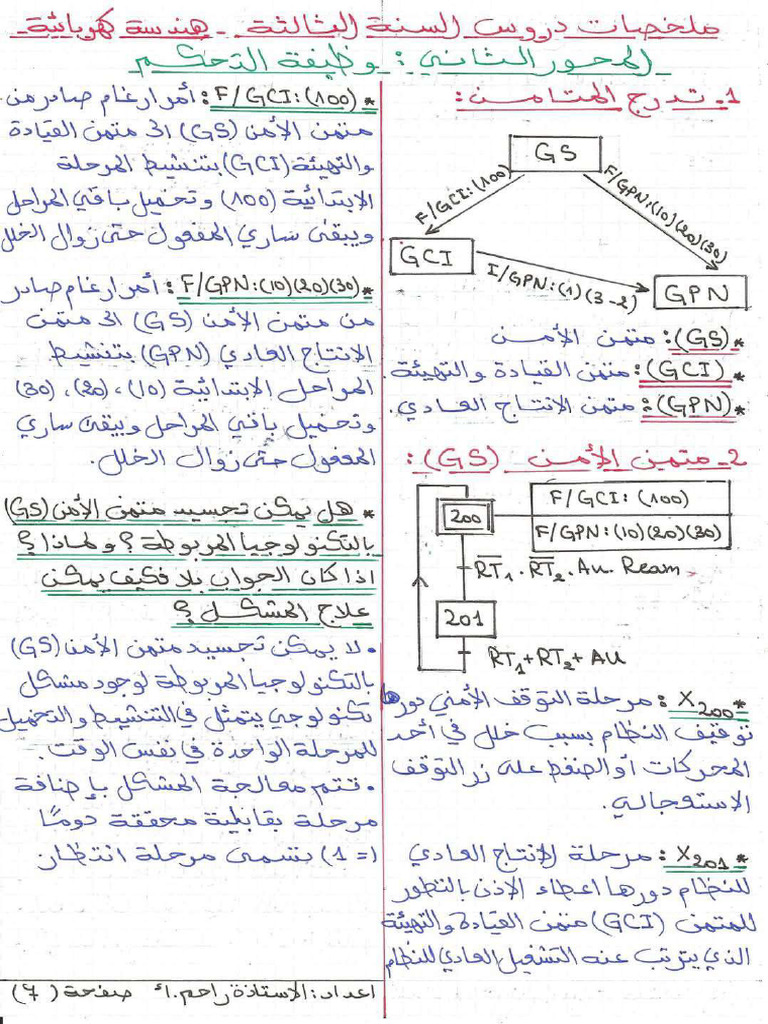 ملخصات دروس السنة الثالثة - هندسة كهربائية -
المحور الثاني : وظيفة التحكم
1- تدرج المتامن:
GS
F/GCI:(100)
F/GPN:(10)(20)(30)
GCI
I/GPN:(1)(3-2)
GPN
*(GS): متمن الأمن
*(GCI): متمن القيادة والتهيئة.
*(GPN): متمن الانتاج العادي.
2- متمن الأمن (GS):
200
F/GCI: (100)
F/GPN: (10)(20)(30)
R̅T̅₁ . R̅T̅₂ . Au . Ream
201
RT₁+RT₂+AU
*X₂₀₀: مرحلة التوقف الأمني دورها
توقيف النظام بسبب خلل في أحد
المحركات أو الضغط على زر التوقف
الاستعجالي.
*X₂₀₁: مرحلة الإنتاج العادي
للنظام دورها اعطاء الإذن بالتطور
للمتمن (GCI) متمن القيادة والتهيئة
الذي يترتب عنه التشغيل العادي للنظام
*F/GCI:(100): أمر ارغام صادر من
متمن الأمن (GS) الى متمن القيادة
والتهيئة (GCI) بتنشيط المرحلة
الابتدائية (100) وتخميل باقي المراحل
ويبقى ساري المفعول حتى زوال الخلل
*F/GPN:(10)(20)(30): أمر ارغام صادر
من متمن الأمن (GS) الى متمن
الانتاج العادي (GPN) بتنشيط
المراحل الابتدائية (10)، (20)، (30)
وتخميل باقي المراحل ويبقى ساري
المفعول حتى زوال الخلل.
* هل يمكن تجسيد متمن الأمن (GS)
بالتكنولوجيا المربوطة ؟ و لماذا ؟
اذا كان الجواب بلا فكيف يمكن
علاج المشكل ؟
• لا يمكن تجسيد متمن الأمن (GS)
بالتكنولوجيا المربوطة لوجود مشكل
تكنولوجي يتمثل في التنشيط والتخميل
للمرحلة الواحدة في نفس الوقت.
• تتم معالجة المشكل بإضافة
مرحلة بقابلية محققة دومًا
(=1) تسمى مرحلة انتظار
اعداد: الاستاذة راحم.أ صفحة (7)